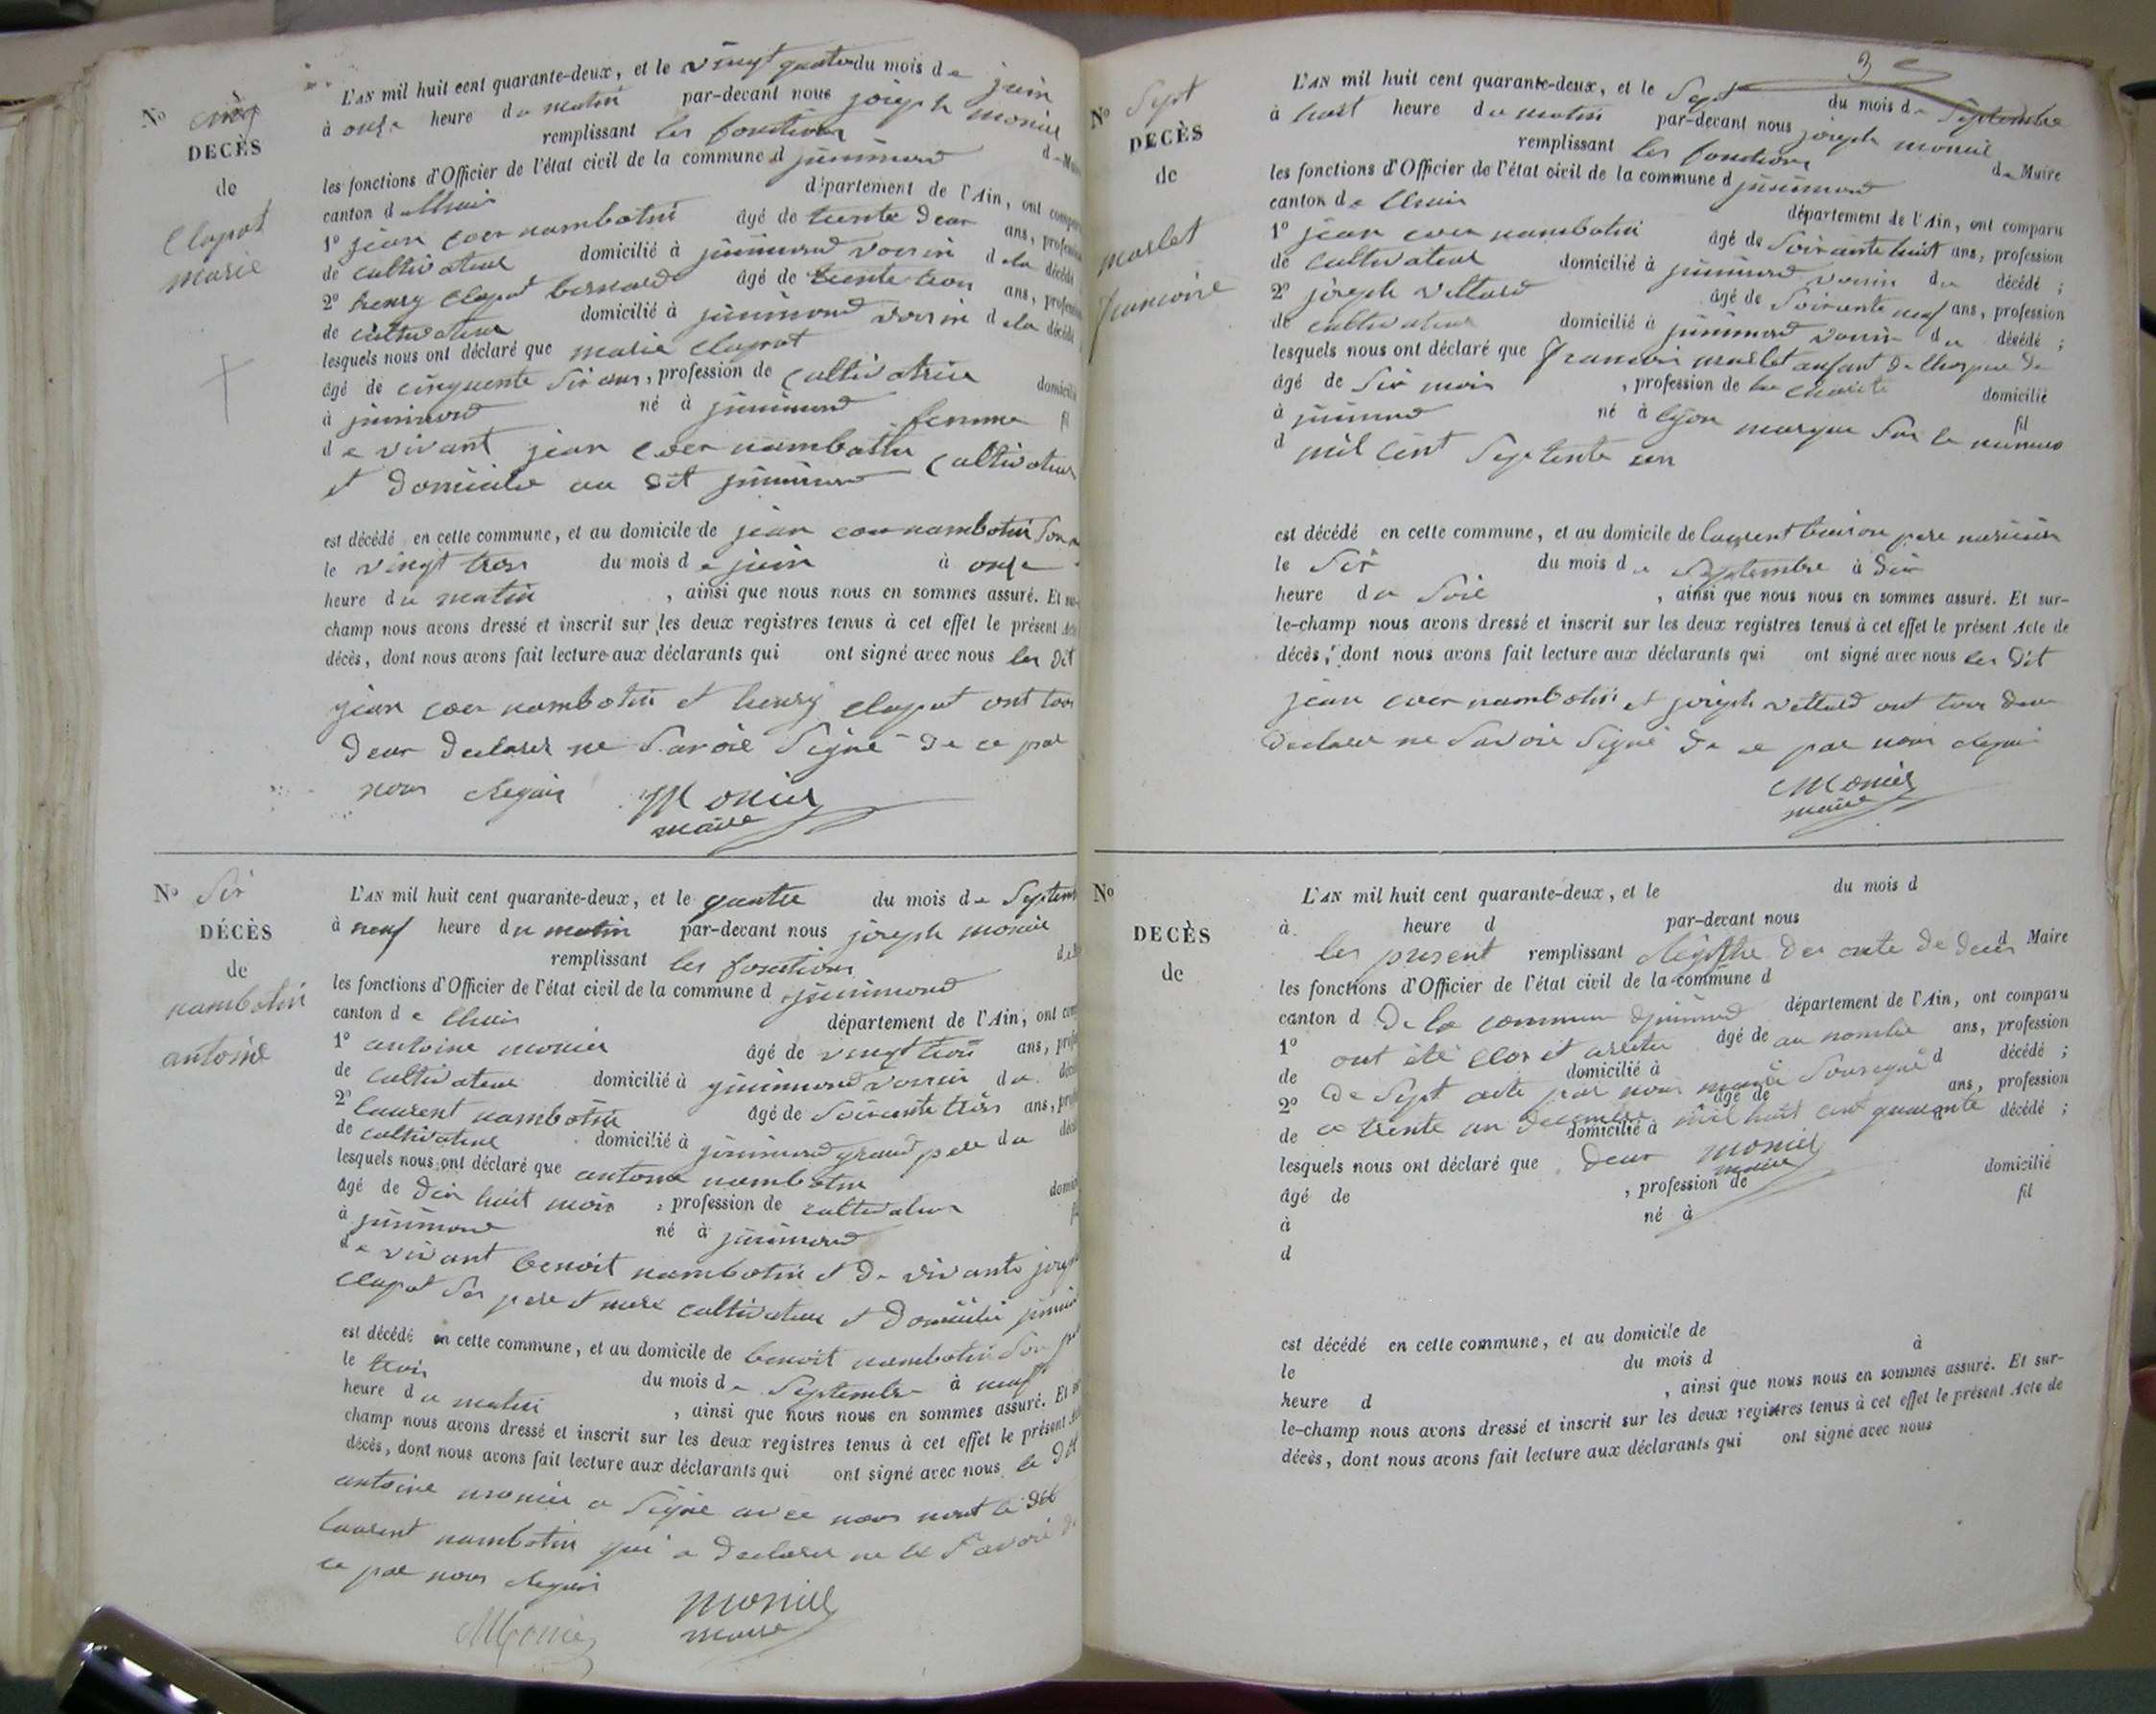 No cinq
DECÈS
de
Clapot
marie
L'AN mil huit cent quarante-deux, et le vingt quatre du mois de juin
à onze heure du matin par-devant nous joseph monier
remplissant les fonctions de Maire
les fonctions d'Officier de l'état civil de la commune d jujurieux
canton d
département de l'Ain, ont comparu
1o jean coer nambotin âgé de trente deux ans, profession
de cultivateur domicilié à voisin de la décédé
2o henry Clapot bernard âgé de trente trois ans, profession
de cultivateur domicilié à voisin de la décédé
lesquels nous ont déclaré que marie clapot
âgé de cinquente six ans, profession de cultivatrice domicilié
à né à femme fil
de vivant jean coer nambotin cultivateur
et domicilie au dit
est décédé en cette commune, et au domicile de jean coer nambotin son
le vingt trois du mois de juin à onze
heure du matin , ainsi que nous nous en sommes assuré. Et sur-
champ nous avons dressé et inscrit sur les deux registres tenus à cet effet le présent Acte
décès, dont nous avons fait lecture aux déclarants qui ont signé avec nous les dit
jean coer nambotin et henry clapot ont tous
deux declarer ne savoir signé de ce par
nous requis Monier
maire
No Six
DÉCÈS
de
nambotin
antoine
L'AN mil huit cent quarante-deux, et le quatre du mois de Septem
à neuf heure du matin par-devant nous joseph monier
remplissant les fonctions de
les fonctions d'Officier de l'état civil de la commune d
canton de
département de l'Ain, ont com
1o antoine monier âgé de vingt trois ans, profes
de cultivateur domicilié à voisin du décé
2o laurent nambotin âgé de soixante trois ans, profes
de cultivateur domicilié à grand pere du décé
lesquels nous ont déclaré que antoine nambotin
âgé de dix huit mois , profession de cultivateur domici
à né à
de vivant benoit nambotin et de vivante
clapot ses pere et mere cultivateur et domicilie
est décédé en cette commune, et au domicile de benoit nambotin son
le trois du mois de Septembre à neuf
heure du matin , ainsi que nous nous en sommes assuré. Et
champ nous avons dressé et inscrit sur les deux registres tenus à cet effet le présent
décès, dont nous avons fait lecture aux déclarants qui ont signé avec nous le dit
antoine monier a signé avec nous le dit
laurent nambotin qui a declarer ne le savoir de
ce par nous requis
Monier monier
maire
3
No Sept
DÉCÈS
de
marlet
francoise
L'AN mil huit cent quarante-deux, et le Sept du mois de Septembre
à huit heure du matin par-devant nous joseph monier
remplissant les fonctions de Maire
les fonctions d'Officier de l'état civil de la commune d
canton de
département de l'Ain, ont comparu
1o jean coer nambotin âgé de Soixante huit ans, profession
de cultivateur domicilié à voisin du décédé ;
2o joseph vettard âgé de Soixante neuf ans, profession
de cultivateur domicilié à voisin du décédé ;
lesquels nous ont déclaré que francois marlet enfant de de
âgé de Six mois , profession de la charité domicilié
à né à lyon marque sur le numero fil
d mil cent Septente un
est décédé en cette commune, et au domicile de laurent pere
le Six du mois de Septembre à dix
heure du soir , ainsi que nous nous en sommes assuré. Et sur-
le-champ nous avons dressé et inscrit sur les deux registres tenus à cet effet le présent Acte de
décès, dont nous avons fait lecture aux déclarants qui ont signé avec nous les dit
jean coer nambotin et joseph vettard ont tous deux
declarer ne savoir signé de ce par nous requis
Monier
maire
No
DECÈS
de
L'AN mil huit cent quarante-deux, et le du mois d
à heure d par-devant nous
les present remplissant registre des acte de deces d Maire
les fonctions d'Officier de l'état civil de la commune d
canton d de la commune département de l'Ain, ont comparu
1o ont été clos et arreter âgé de au nombre ans, profession
de domicilié à d décédé ;
2o de Sept acte par nous maire Soussigné âgé de ans, profession
de ce trente un decembre domicilié à mil huit cent quarante décédé ;
lesquels nous ont déclaré que deux monier
maire
âgé de , profession de domicilié
à né à fil
d
est décédé en cette commune, et au domicile de
le du mois d à
heure d , ainsi que nous nous en sommes assuré. Et sur-
le-champ nous avons dressé et inscrit sur les deux registres tenus à cet effet le présent Acte de
décès, dont nous avons fait lecture aux déclarants qui ont signé avec nous